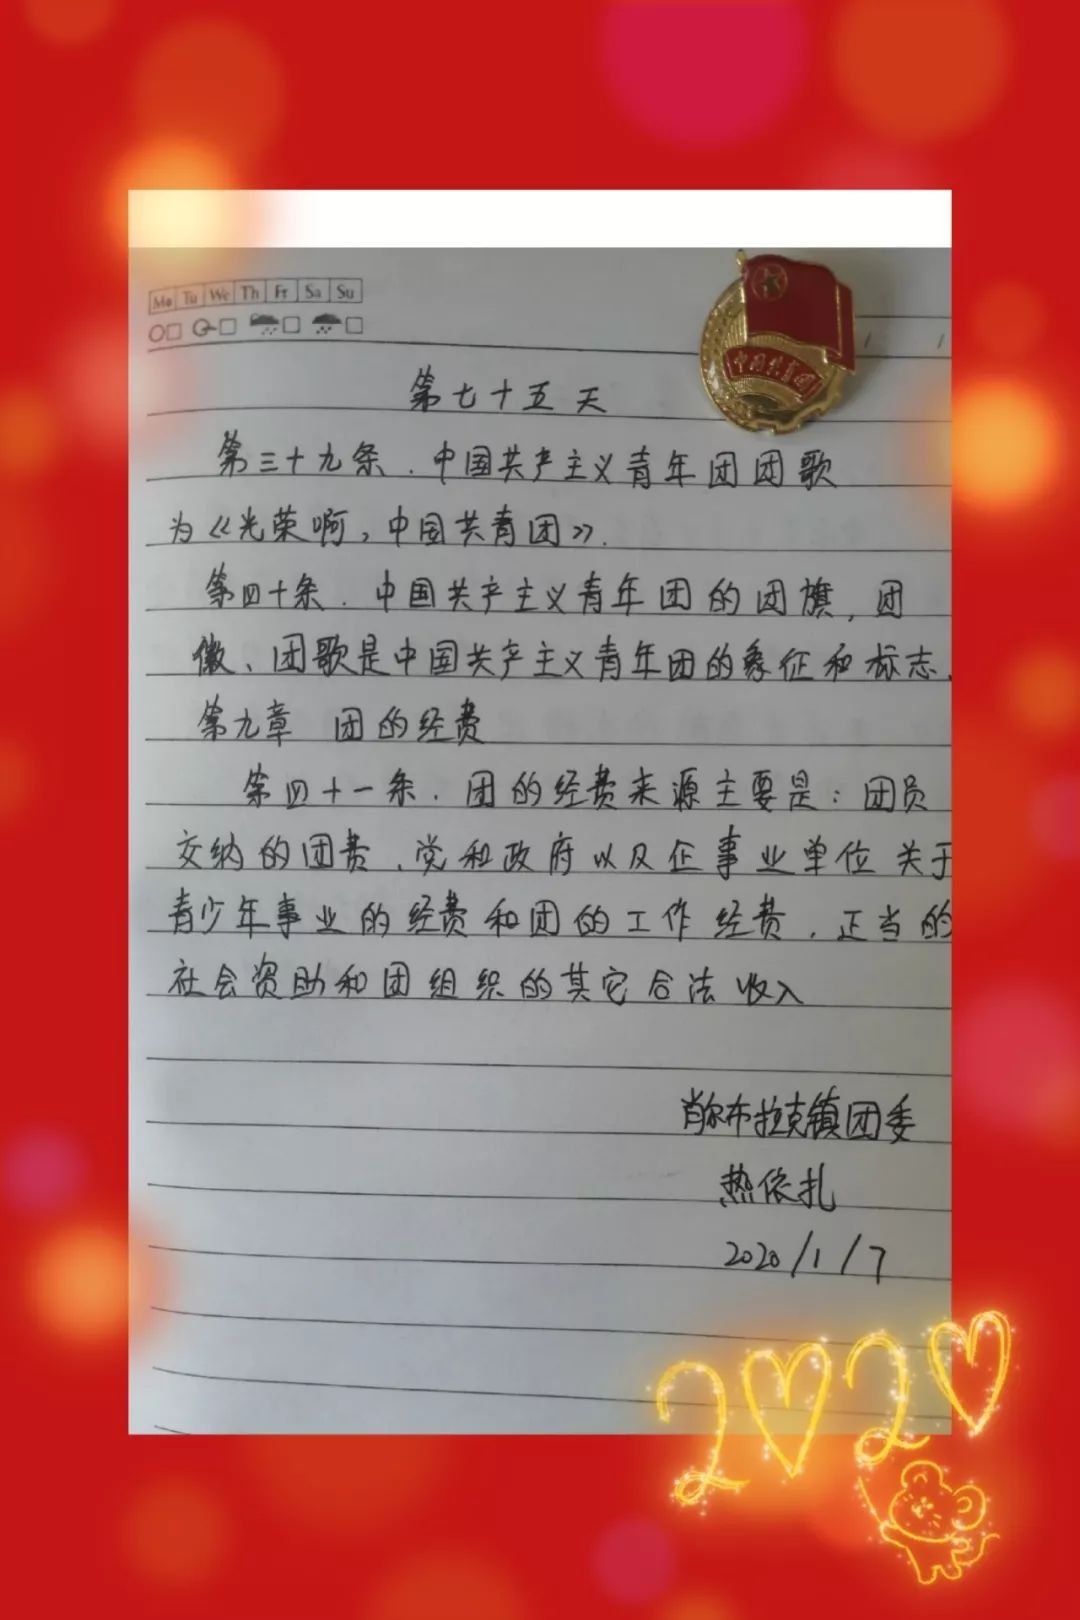 Mo Tu We Th Fr Sa Su
中国共青团
第七十五天
第三十九条.中国共产主义青年团团歌
为《光荣啊,中国共青团》.
第四十条.中国共产主义青年团的团旗,团
徽、团歌是中国共产主义青年团的象征和标志.
第九章 团的经费
第四十一条.团的经费来源主要是:团员
交纳的团费、党和政府以及企事业单位关于
青少年事业的经费和团的工作经费.正当的
社会资助和团组织的其它合法收入
肖尔布拉克镇团委
热依扎
2020/1/7
2020